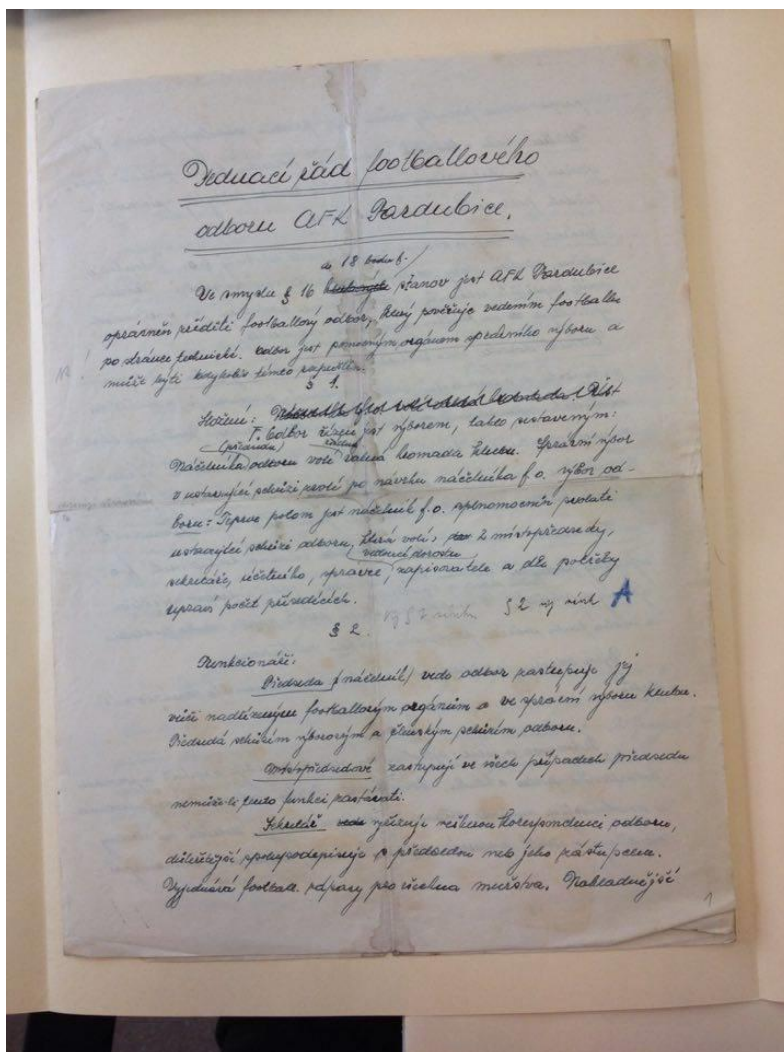 Jednací řád footballového
odboru AFK Pardubice.
18
Ve smyslu § 16 stanov jest AFK Pardubice
oprávněn zříditi footballový odbor, který pověřuje vedením footballu
po stránce technické. Odbor jest pomocným orgánem správního výboru a
může býti kdykoliv tímto rozpuštěn.
§ 1.
Složení:
F. Odbor řízen jest výborem, takto sestaveným:
(předsedu) řádná
Náčelníka odboru volí valná hromada klubu. Správní výbor
v ustavující schůzi zvolí po návrhu náčelníka f.o. výbor od-
boru: Teprve potom jest náčelník f.o. splnomocněn svolati
ustavující schůzi odboru, která volí: 2 místopředsedy,
vedoucí dorostu
sekretáře, účetního, správce, zapisovatele a dle potřeby
upraví počet přísedících.
§ 2. § 2 A
Funkcionáři:
Předseda (náčelník) vede odbor zastupuje jej
vůči nadřízeným footballovým orgánům a ve správním výboru klubu.
Předsedá schůzím výborovým a členským schůzím odboru.
Místopředsedové zastupují ve všech případech předsedu
nemůže-li tento funkci zastávati.
Sekretář vede vyřizuje veškerou korespondenci odboru,
důležitější spolupodepisuje s předsedou nebo jeho zástupcem.
Vyjednává football. zápasy pro všechna mužstva. Nákladnější
1